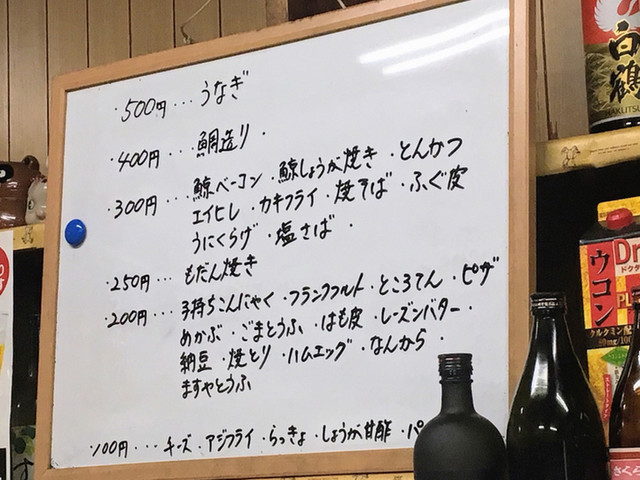 ・500円・・・うなぎ
・400円・・・鯛造り・
・300円・・・鯨ベーコン・鯨しょうが焼き・とんかつ
エイヒレ・カキフライ・焼そば・ふぐ皮
うにくらげ・塩さば・
・250円・・・もだん焼き
・200円・・・子持ちこんにゃく・フランクフルト・ところてん・ピザ
めかぶ・ごまとうふ・はも皮・レーズンバター・
納豆・焼とり・ハムエッグ・なんから・
ますやとうふ
・100円・・・チーズ・アジフライ・らっきょ・しょうが甘酢・パ
白鶴
HAKUTSU
Dr
ドクタ
ウコン
クルクミン配
さくら